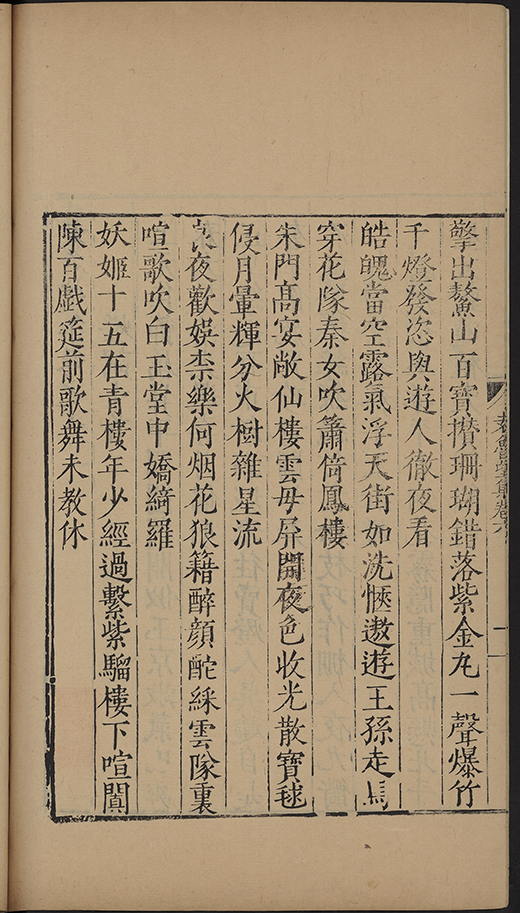 卷六
一
擎出鰲山百寶攢珊瑚錯落紫金丸一聲爆竹
千燈發恣與遊人徹夜看
皓魄當空露氣浮天街如洗愜遨遊王孫走馬
穿花隊秦女吹簫倚鳳樓
朱門髙宴敞仙樓雲母屏開夜色收光散寶毬
侵月暈輝分火樹雜星流
良夜歡娛柰樂何烟花狼籍醉顏酡綵雲隊裏
喧歌吹白玉堂中嬌綺羅
妖姬十五在青樓年少經過繫紫騮樓下喧闐
陳百戲筵前歌舞未教休